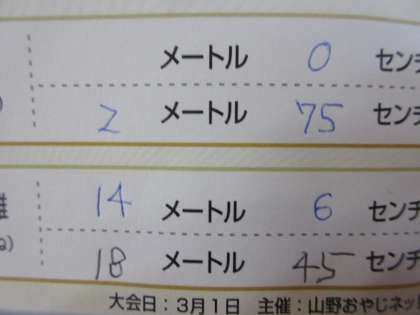 メートル 0 センチ
2 メートル 75 センチ
14 メートル 6 センチ
18 メートル 45 センチ
大会日:3月1日 主催:山野おやじネット